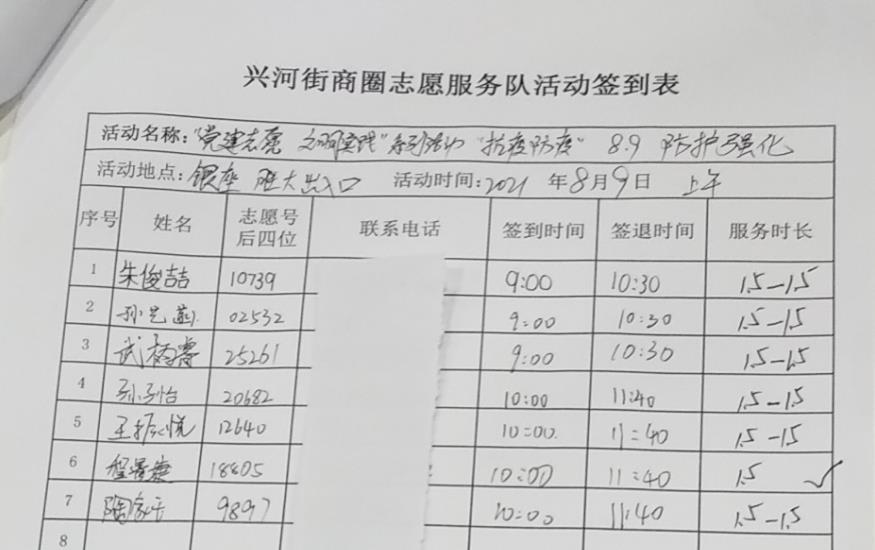 兴河街商圈志愿服务队活动签到表
活动名称："党建志愿 文明实践"系列活动 "抗疫防疫" 8.9 防护强化
活动地点：银座 胜大出入口 活动时间：2021 年 8 月 9 日 上午
序号 姓名 志愿号后四位 联系电话 签到时间 签退时间 服务时长
1 朱俊喆 10739 9:00 10:30 1.5-1.5
2 孙 02532 9:00 10:30 1.5-1.5
3 武 25261 9:00 10:30 1.5-1.5
4 孙子怡 20682 10:00 11:40 1.5-1.5
5 王振悦 12640 10:00. 11:40 1.5-1.5
6 程 18405 10:00 11:40 1.5 ✓
7 陶 9897 10:00 11:40 1.5-1.5
8